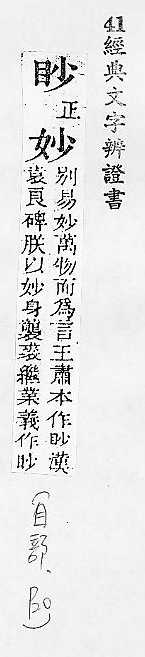 41經典文字辨證書
眇正妙
別易妙萬物而爲言王肅本作眇漢
袁良碑朕以妙身襲裘繼業義作眇
(目部、